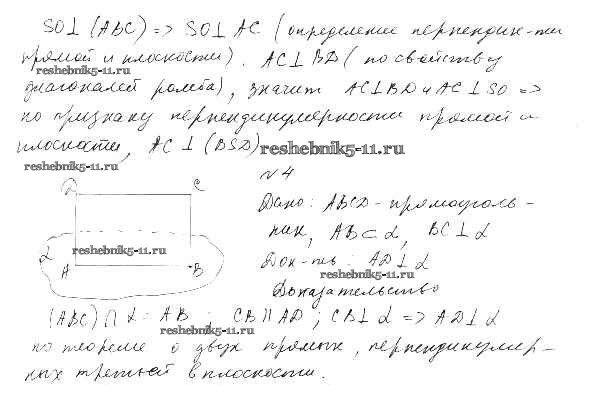 SO⊥(ABC) => SO⊥AC (определение перпендик-ти
прямой и плоскости). AC⊥BD (по свойству
reshebnik5-11.ru
диагоналей ромба), значит AC⊥BD и AC⊥SO =>
по признаку перпендикулярности прямой и
плоскости, AC⊥(BSD)
reshebnik5-11.ru
reshebnik5-11.ru
№4
D C
Дано: ABCD - прямоуголь-
ник, AB⊂α, BC⊥α
reshebnik5-11.ru
α A B
Док-ть: AD⊥α
reshebnik5-11.ru
Доказательство
(ABC)∩α = AB; CB∥AD; CB⊥α => AD⊥α
reshebnik5-11.ru
по теореме о двух прямых, перпендикуляр-
ных третьей в плоскости.